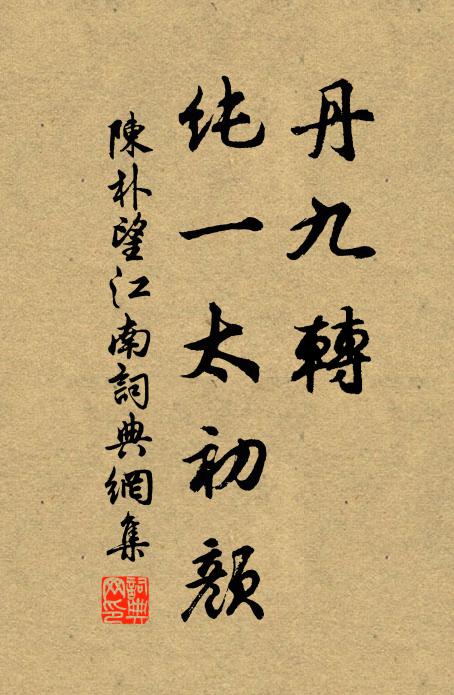 丹九轉
纯一太初顏
陳朴望江南詞典網集
詞典网印